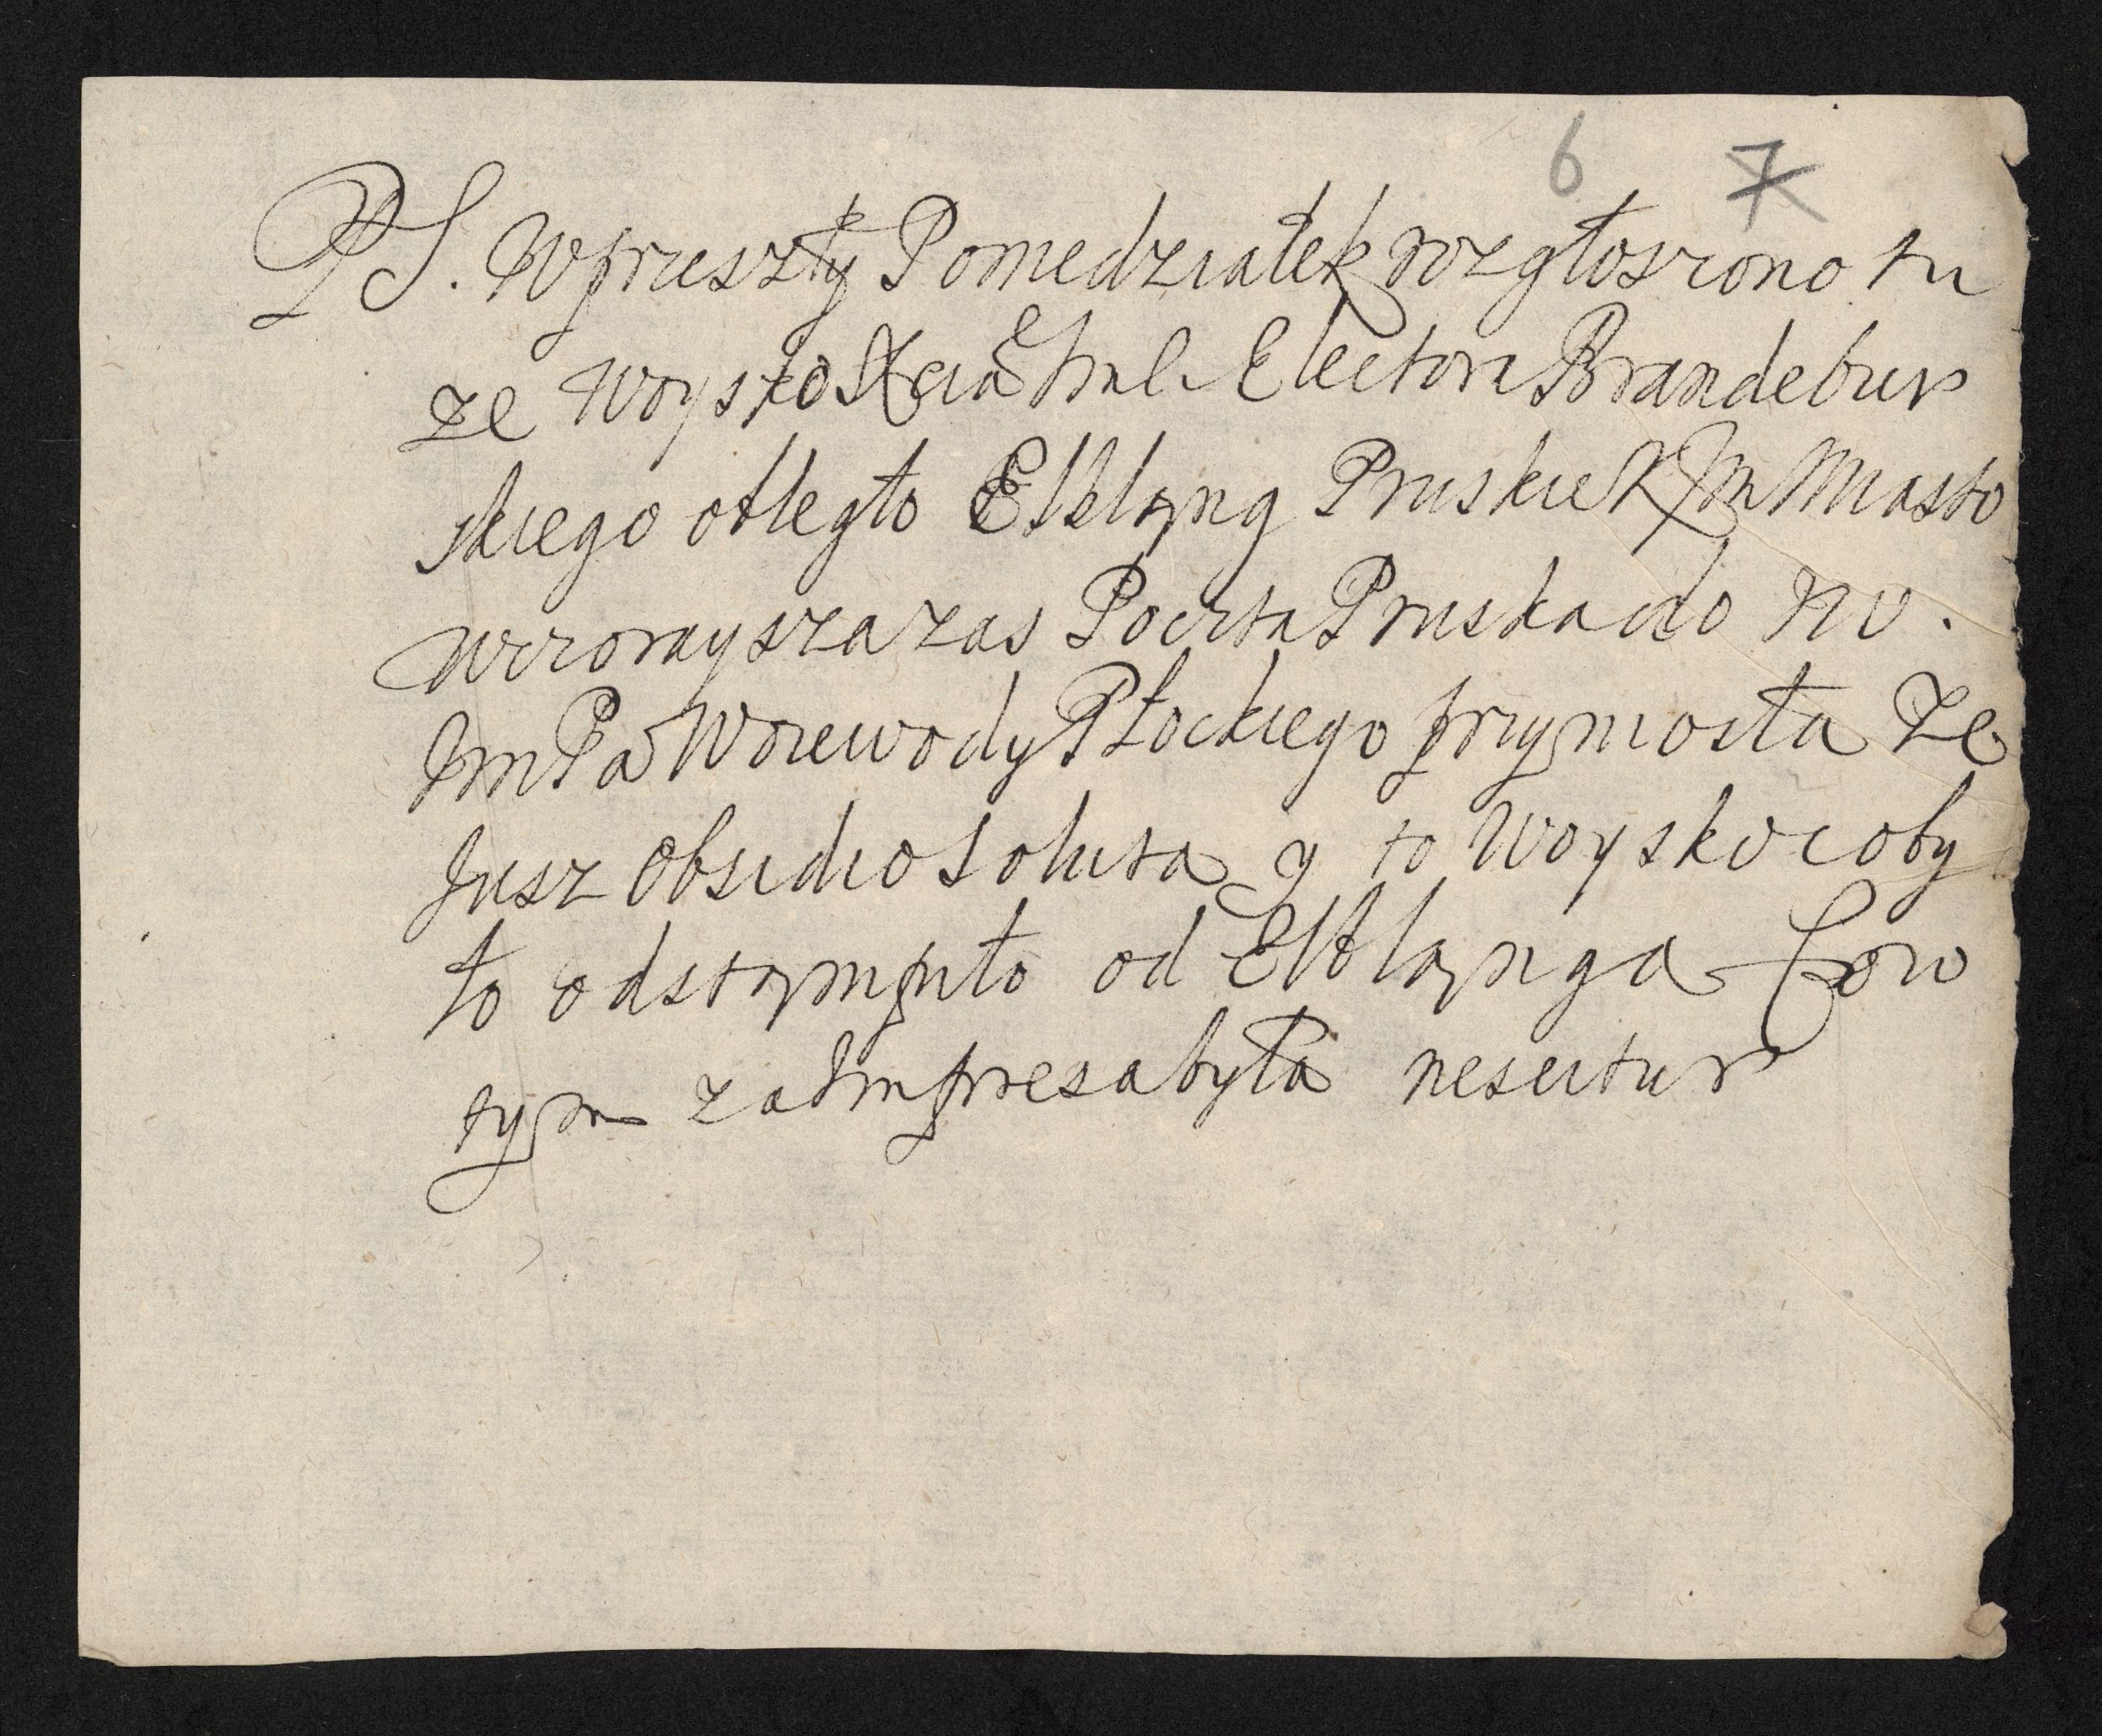 6 7
PS. W przeszły Poniedziałek rozgłoszono tu
ze Woysko Xcia Elektora Brandebur
skiego obległo Elbląng Pruskie K Jm Miasto
wczoraysza zas Poczta Pruska do
Jm Pa Woiewody Płockiego przyniosła ze
Jusz Obsidio Soluta y to Woysko coby
ło odstąmpnło od Elbląnga Co w
tym za Impresa była nescitur